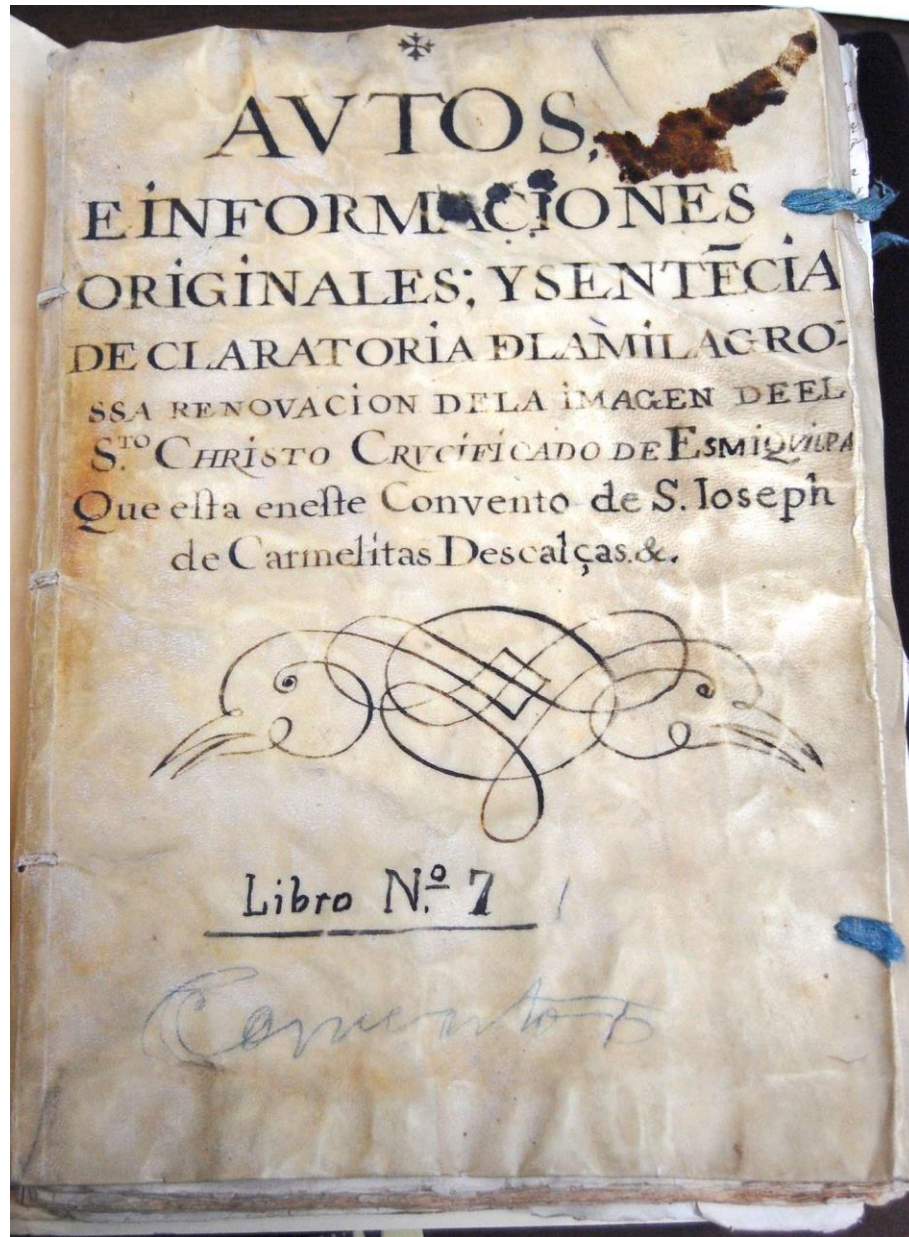 ✠
AVTOS,
E INFORMACIONES
ORIGINALES; Y SENTE̅CIA
DE CLARATORIA ĐLA MILAGRO-
SSA RENOVACION DE LA IMAGEN DE EL
S.TO CHRISTO CRVCIFICADO DE ESMIQVILPA
Que esta en este Convento de S. Ioseph
de Carmelitas Descalças.&.
Libro N.º 7
Conventos